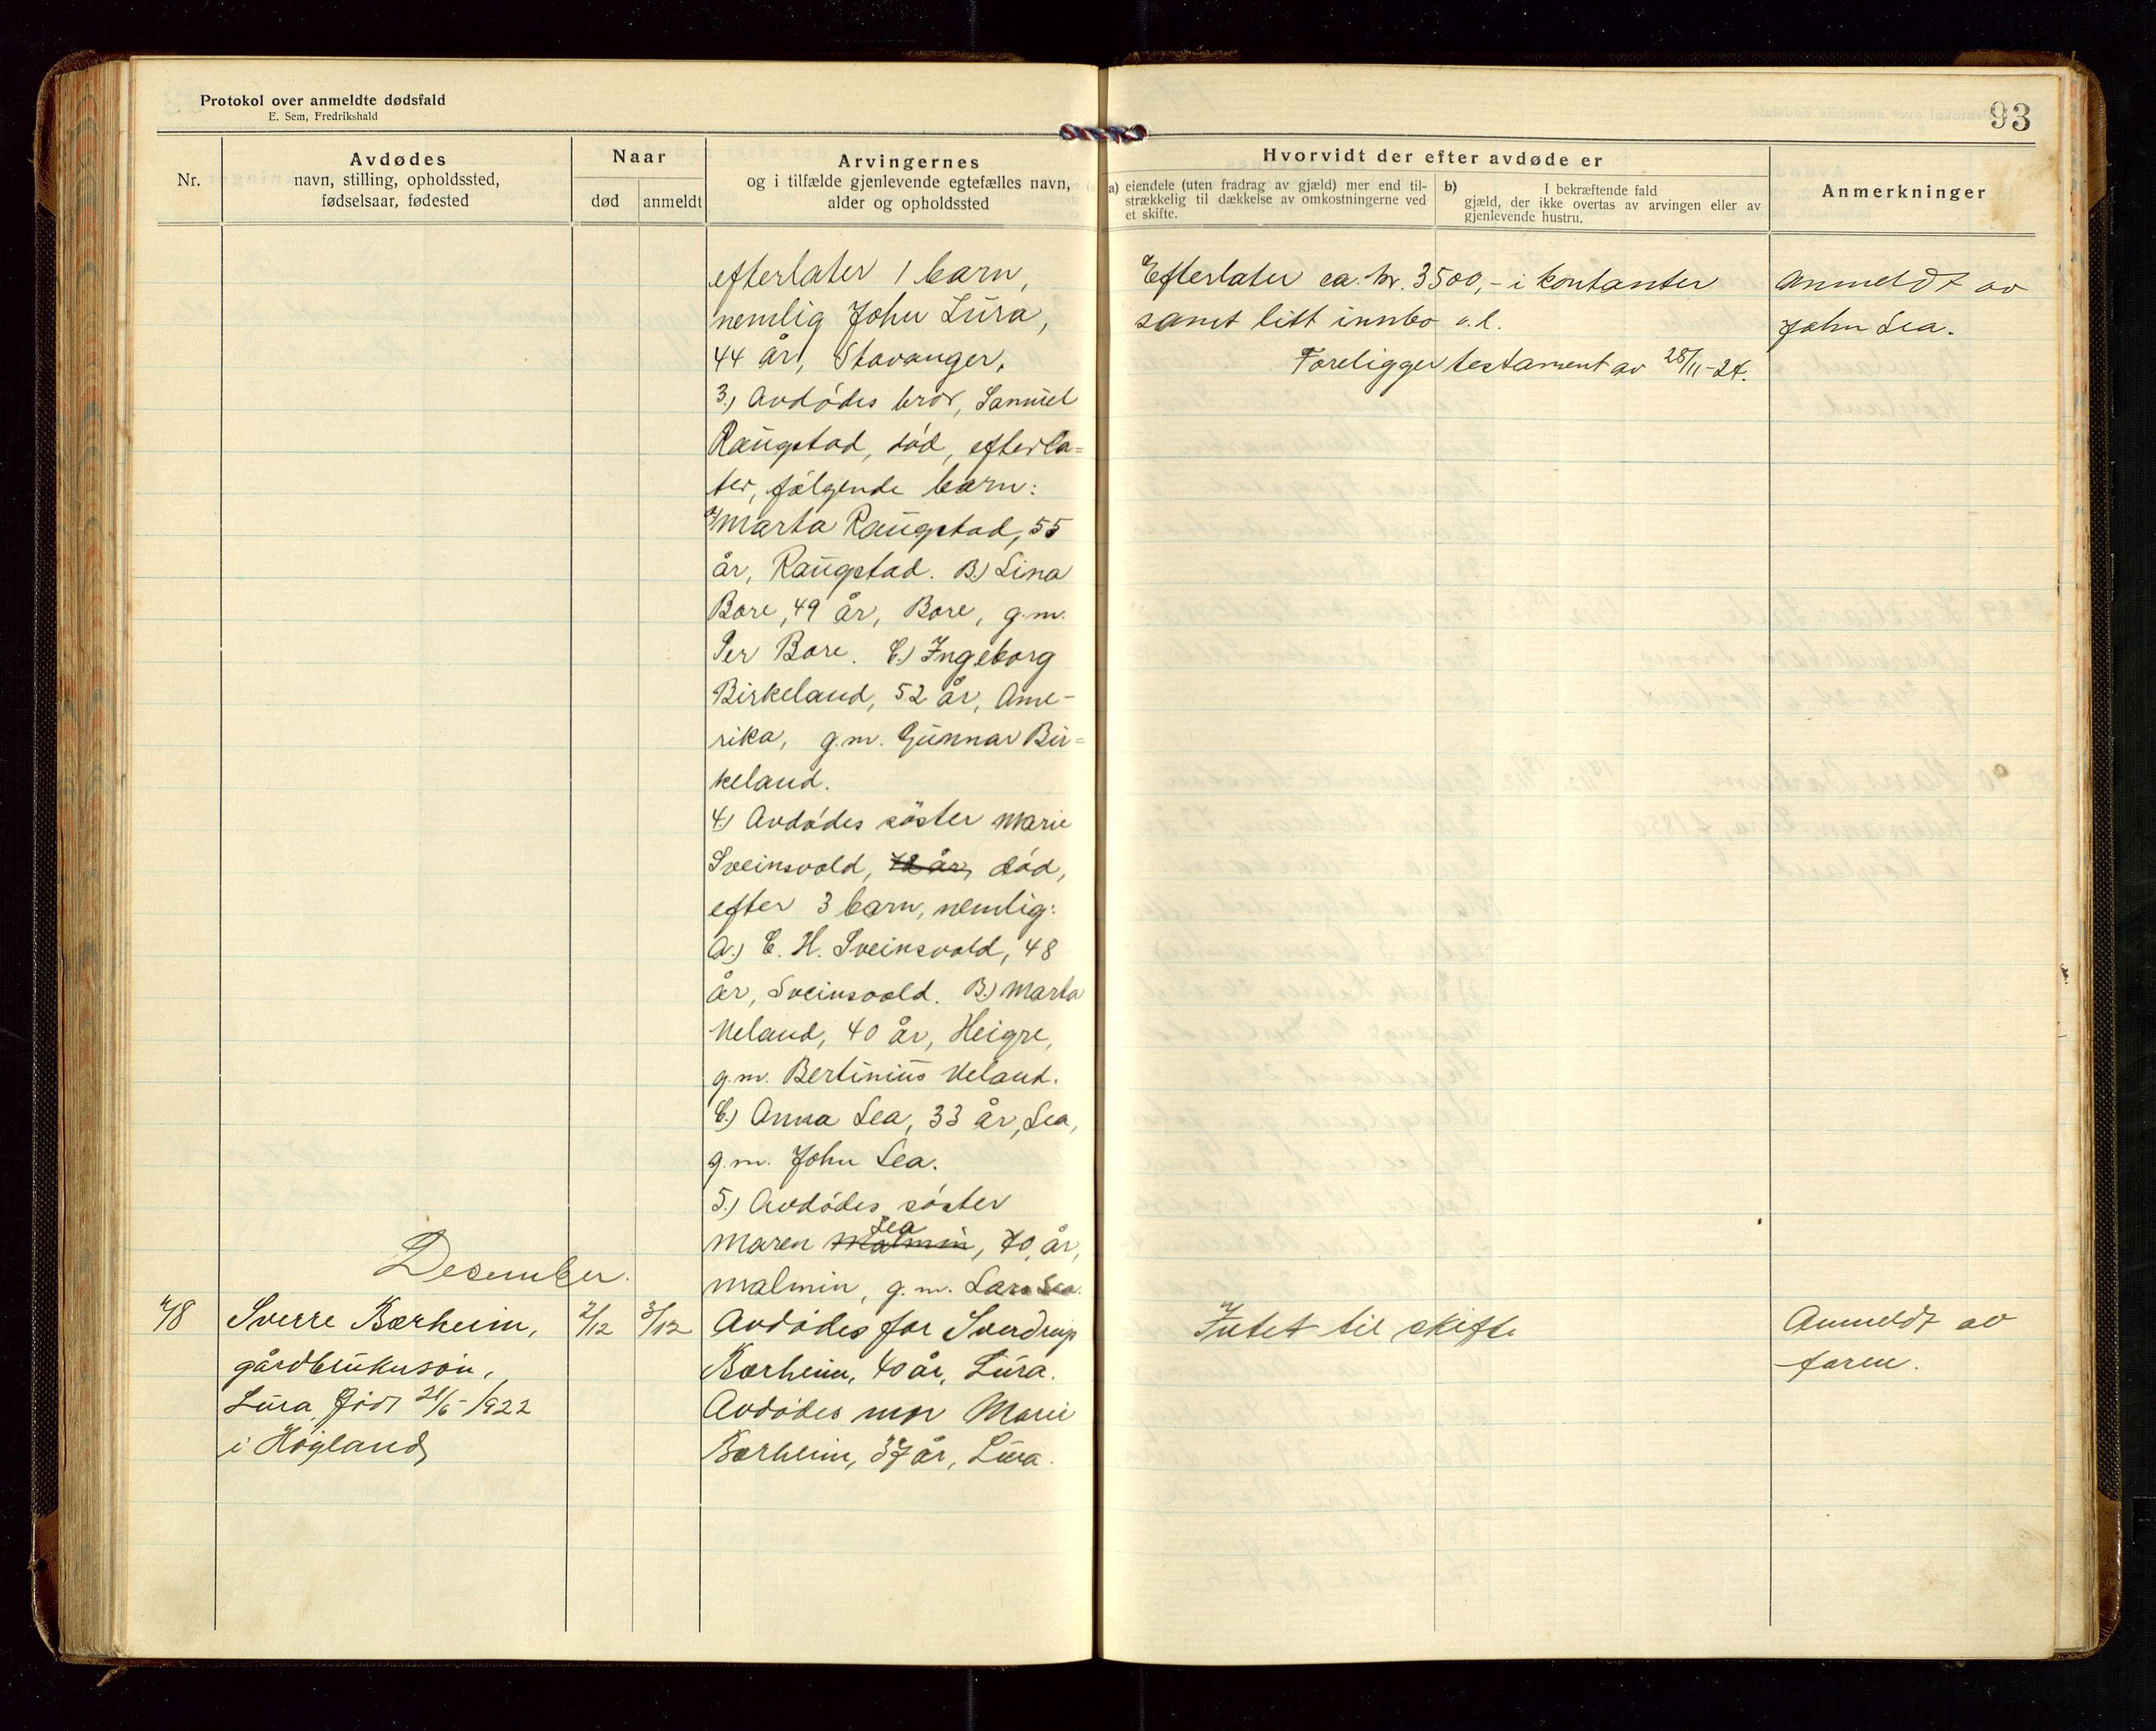 Protokol over anmeldte dødsfald
E. Sem, Fredrikshald
93
Nr.
Avdødes
navn, stilling, opholdssted,
fødselsaar, fødested
Naar
død
anmeldt
Arvingernes
og i tilfælde gjenlevende egtefælles navn,
alder og opholdssted
Hvorvidt der efter avdøde er
a) eiendele (uten fradrag av gjæld) mer end til-
strækkelig til dækkelse av omkostningerne ved
et skifte.
b) I bekræftende fald
gjæld, der ikke overtas av arvingen eller av
gjenlevende hustru.
Anmerkninger
efterlater 1 barn,
nemlig John Lura,
44 år, Stavanger.
3.) Avdødes bror, Samuel
Raugstad, død, efterla=
ter, følgende barn:
a) Marta Raugstad, 55
år, Raugstad. B.) Lina
Bore, 49 år, Bore, g.m.
Per Bore. C.) Ingeborg
Birkeland, 52 år, Ame-
rika, g.m. Gunnar Bir=
keland.
4.) Avdødes søster Marie
Sveinsvold, 72 år, død,
efter 3 barn, nemlig:
A.) C. H. Sveinsvold, 48
år, Sveinsvold. B.) Marta
Veland, 40 år, Heigre,
g.m. Bertinius Veland.
C.) Anna Lea, 33 år, Lea,
g.m. John Lea.
5.) Avdødes søster
Lea
Maren Malmin, 70 år,
Malmin, g.m. Lars Lea.
Efterlater ca. kr. 3500,- i kontanter
samt litt innbo o.l.
Foreligger testament av 28/11-24.
Anmeldt av
John Lea.
Desember.
48
Sverre Bærheim,
gårdbrukersøn,
Lura, født 21/6-1922
i Høgland
2/12
3/12
Avdødes far Sverdrup
Bærheim, 40 år, Lura.
Avdødes mor Marie
Bærheim, 37 år, Lura.
Intet til skifte
Anmeldt av
faren.